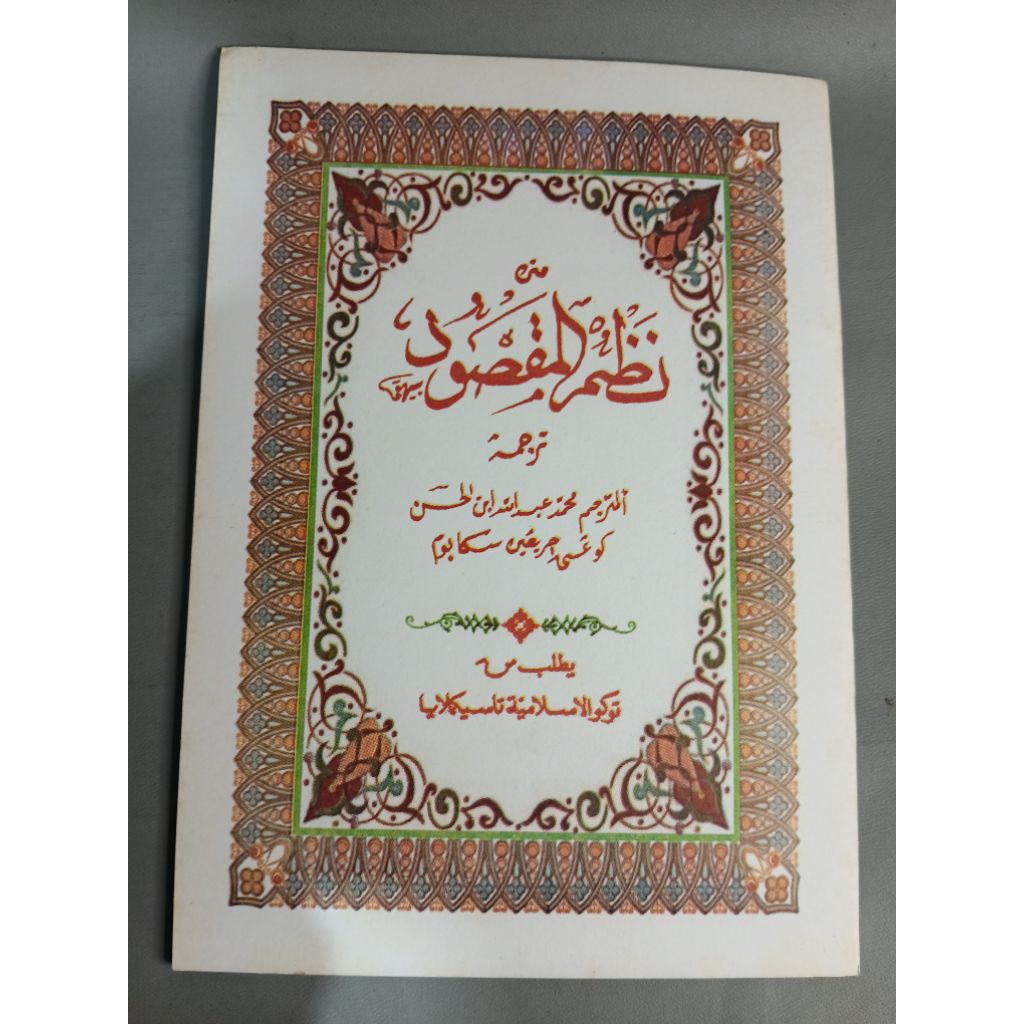 متن
نظم المقصود
ترجمة
المترجم محمد عبدالله ابن الحسن
سكابوم
يطلب من
توكو الاسلامية تاسيكملايا